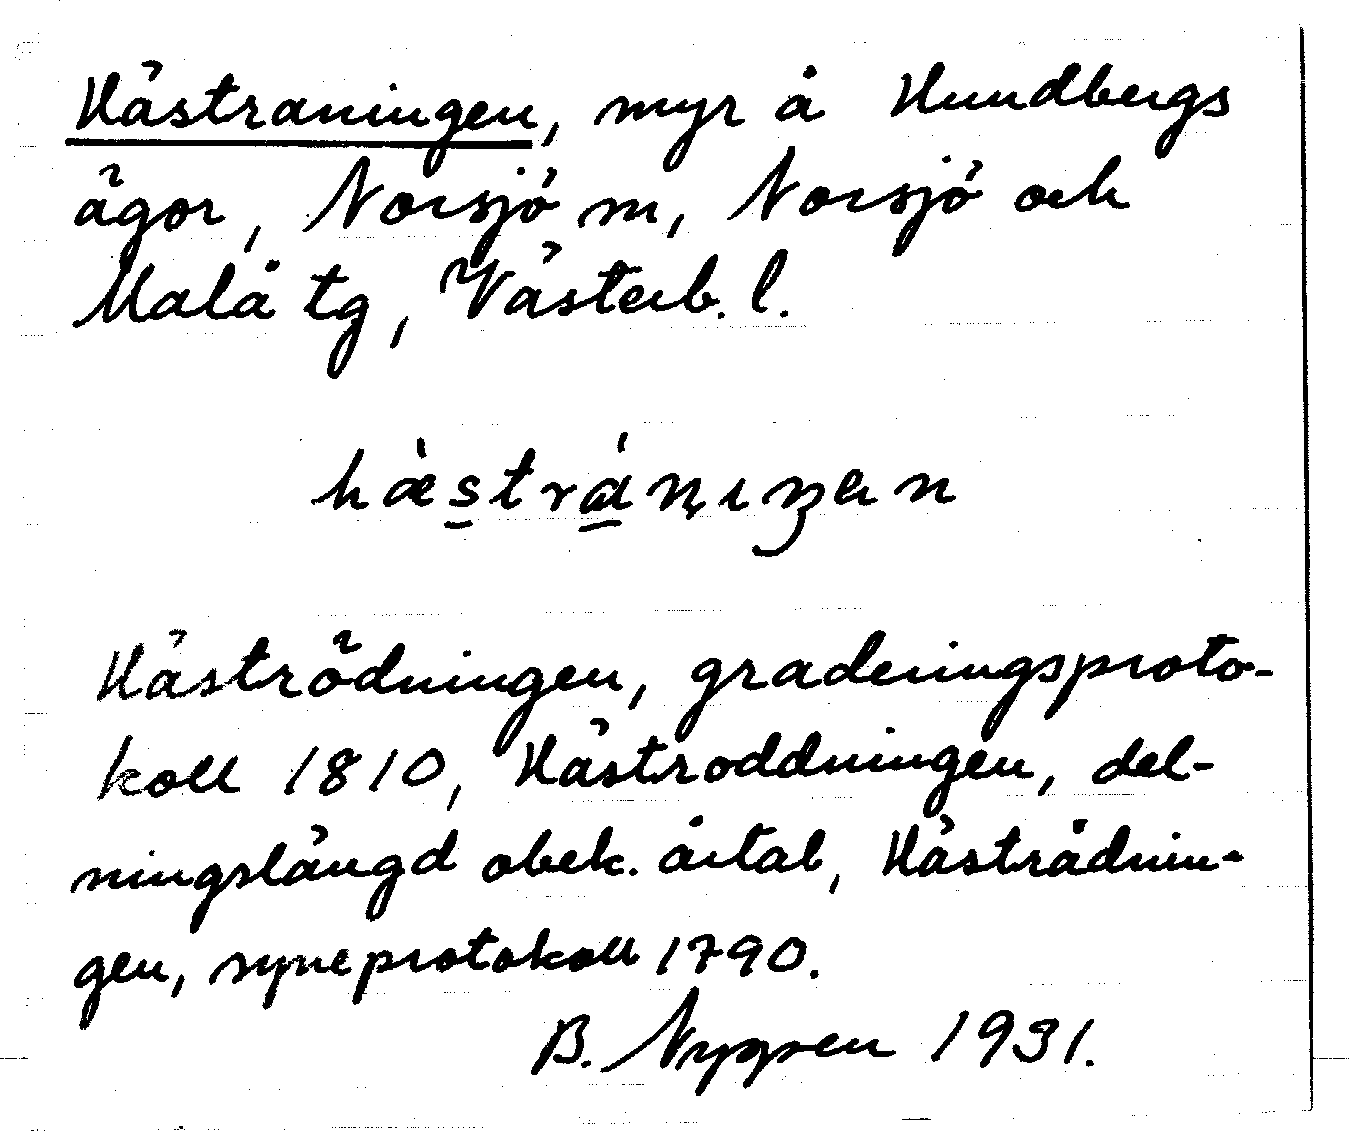 Hästraningen, myr å Hundbergs
ägor, Norsjö sn, Norsjö och
Malå tg, Västerb. l.
Häströdningen, graderingsproto-
koll 1810, Hästroddningen, del-
ningslängd obek. årtal, Hästrådnin-
gen, syneprotokoll 1790.
B. Nygren 1931.